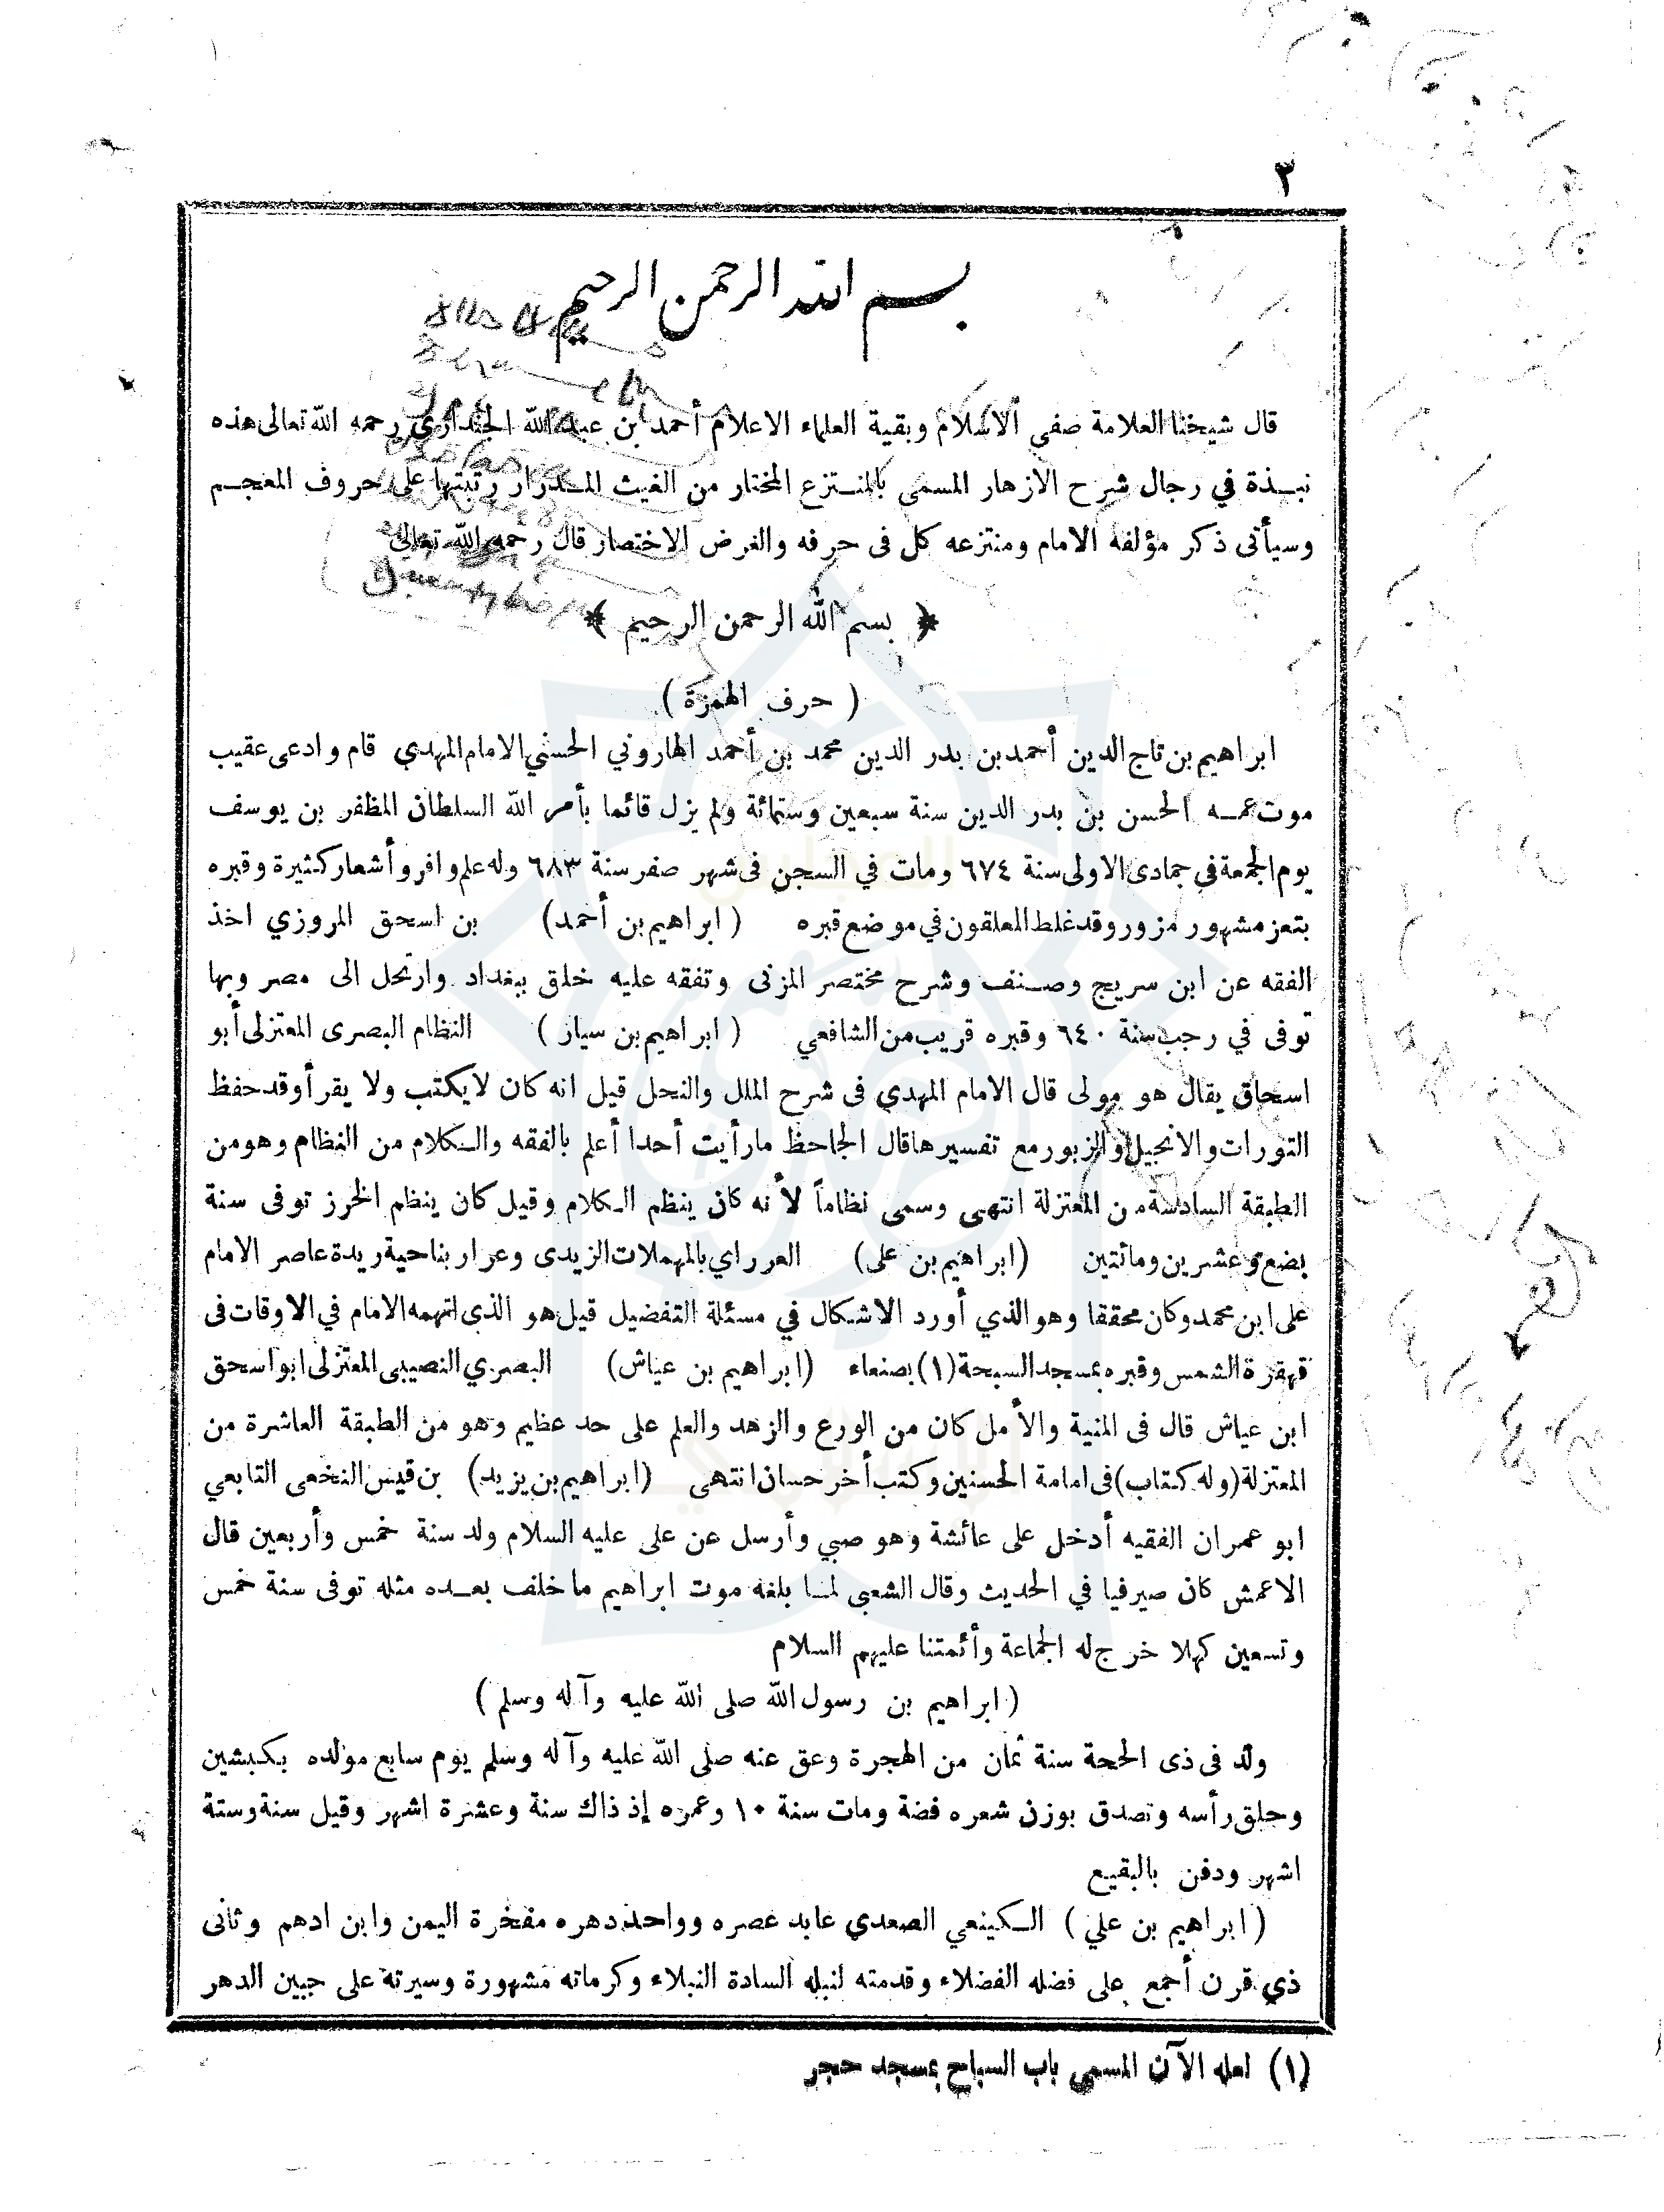 ٣
بسم الله الرحمن الرحيم
قال شيخنا العلامة صفي الاسلام وبقية العلماء الاعلام أحمد بن عبد الله الجنداري رحمه الله تعالى هذه
نبـذة في رجال شرح الازهار المسمى بالمنـتزع المختار من الغيث المـدرار رتبتها على حروف المعجـم
وسيأتى ذكر مؤلفه الامام ومنتزعه كل فى حرفه والغرض الاختصار قال رحمه الله تعالى
﴿ بسم الله الرحمن الرحيم ﴾
( حرف الهمزة )
ابراهيم بن تاج الدين أحمد بن بدر الدين محمد بن أحمد الهاروني الحسني الامام المهدي قام وادعى عقيب
موت عمـه الحسن بن بدر الدين سنة سبعين وستمائة ولم يزل قائما بأمر الله السلطان المظفر بن يوسف
يوم الجمعة في جمادى الاولى سنة ٦٧٤ ومات في السجن فى شهر صفر سنة ٦٨٣ وله علم وافر وأشعار كثيرة وقبره
بتعز مشهور مزور وقد غلط المعلقون في موضع قبره ( ابراهيم بن أحمد ) بن اسحق المروزي اخذ
الفقه عن ابن سريج وصـنف وشرح مختصر المزنى وتفقه عليه خلق ببغداد وارتحل الى مصر وبها
توفى في رجب سنة ٦٤٠ وقبره قريب من الشافعي ( ابراهيم بن سيار ) النظام البصرى المعتزلى أبو
اسحاق يقال هو مولى قال الامام المهدي فى شرح الملل والنحل قيل انه كان لا يكتب ولا يقرأ وقد حفظ
التورات والانجيل والزبور مع تفسيرها قال الجاحظ ما رأيت أحدا أعلم بالفقه والـكلام من النظام وهو من
الطبقة السادسة من المعتزلة انتهى وسمى نظاماً لأنه كان ينظم الـكلام وقيل كان ينظم الخرز توفى سنة
بضع وعشرين ومائتين (ابراهيم بن على) العراري بالمهملات الزيدى وعرار بناحية ريدة عاصر الامام
على ابن محمد وكان محققا وهو الذي أورد الاشكال في مسئلة التفضيل قيل هو الذى اتهمه الامام في الاوقات فى
قهقرة الشمس وقبره بمسجد السبحة (١) بصنعاء (ابراهيم بن عياش) البصري النصيبى المعتزلى ابو اسحق
ابن عياش قال فى المنية والأمل كان من الورع والزهد والعلم على حد عظيم وهو من الطبقة العاشرة من
المعتزلة (وله كتاب) فى امامة الحسنين وكتب أخر حسان انتهى (ابراهيم بن يزيد) بن قيس النخعى التابعي
ابو عمران الفقيه أدخل على عائشة وهو صبي وأرسل عن على عليه السلام ولد سنة خمس وأربعين قال
الاعمش كان صيرفيا في الحديث وقال الشعبى لمـا بلغه موت ابراهيم ما خلف بعـده مثله توفى سنة خمس
وتسعين كهلا خرج له الجماعة وأئمتنا عليهم السلام
( ابراهيم بن رسول الله صلى الله عليه وآله وسلم )
ولد فى ذى الحجة سنة ثمان من الهجرة وعق عنه صلى الله عليه وآله وسلم يوم سابع مولده بكبشين
وحلق رأسه وتصدق بوزن شعره فضة ومات سنة ١٠ وعمره إذ ذاك سنة وعشرة اشهر وقيل سنة وستة
اشهر ودفن بالبقيع
( ابراهيم بن علي ) الـكينعي الصعدي عابد عصره وواحد دهره مفخرة اليمن وابن ادهم وثانى
ذي قرن أجمع على فضله الفضلاء وقدمته لنبله السادة النبلاء وكرماته مشهورة وسيرته على جبين الدهر
(١) لعله الآن المسمى باب السباح بمسجد حجر